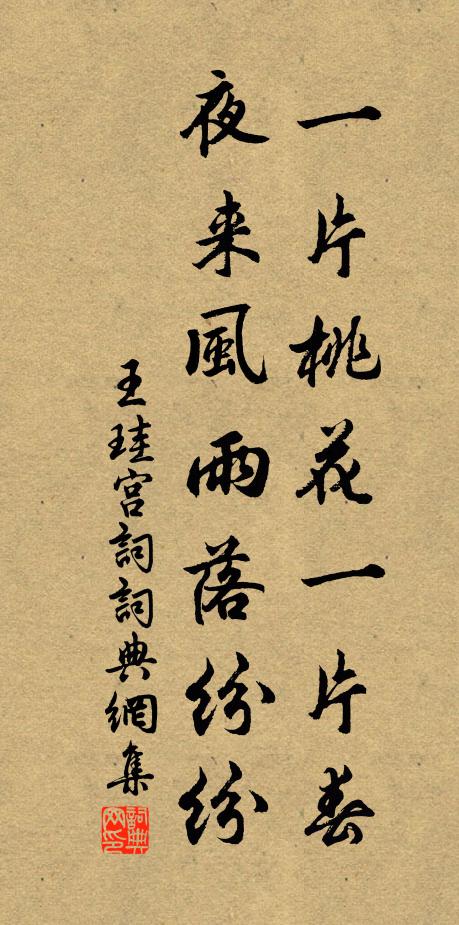 一片桃花一片春
夜来風雨落紛紛
王珪宮詞詞典網集
詞典网印